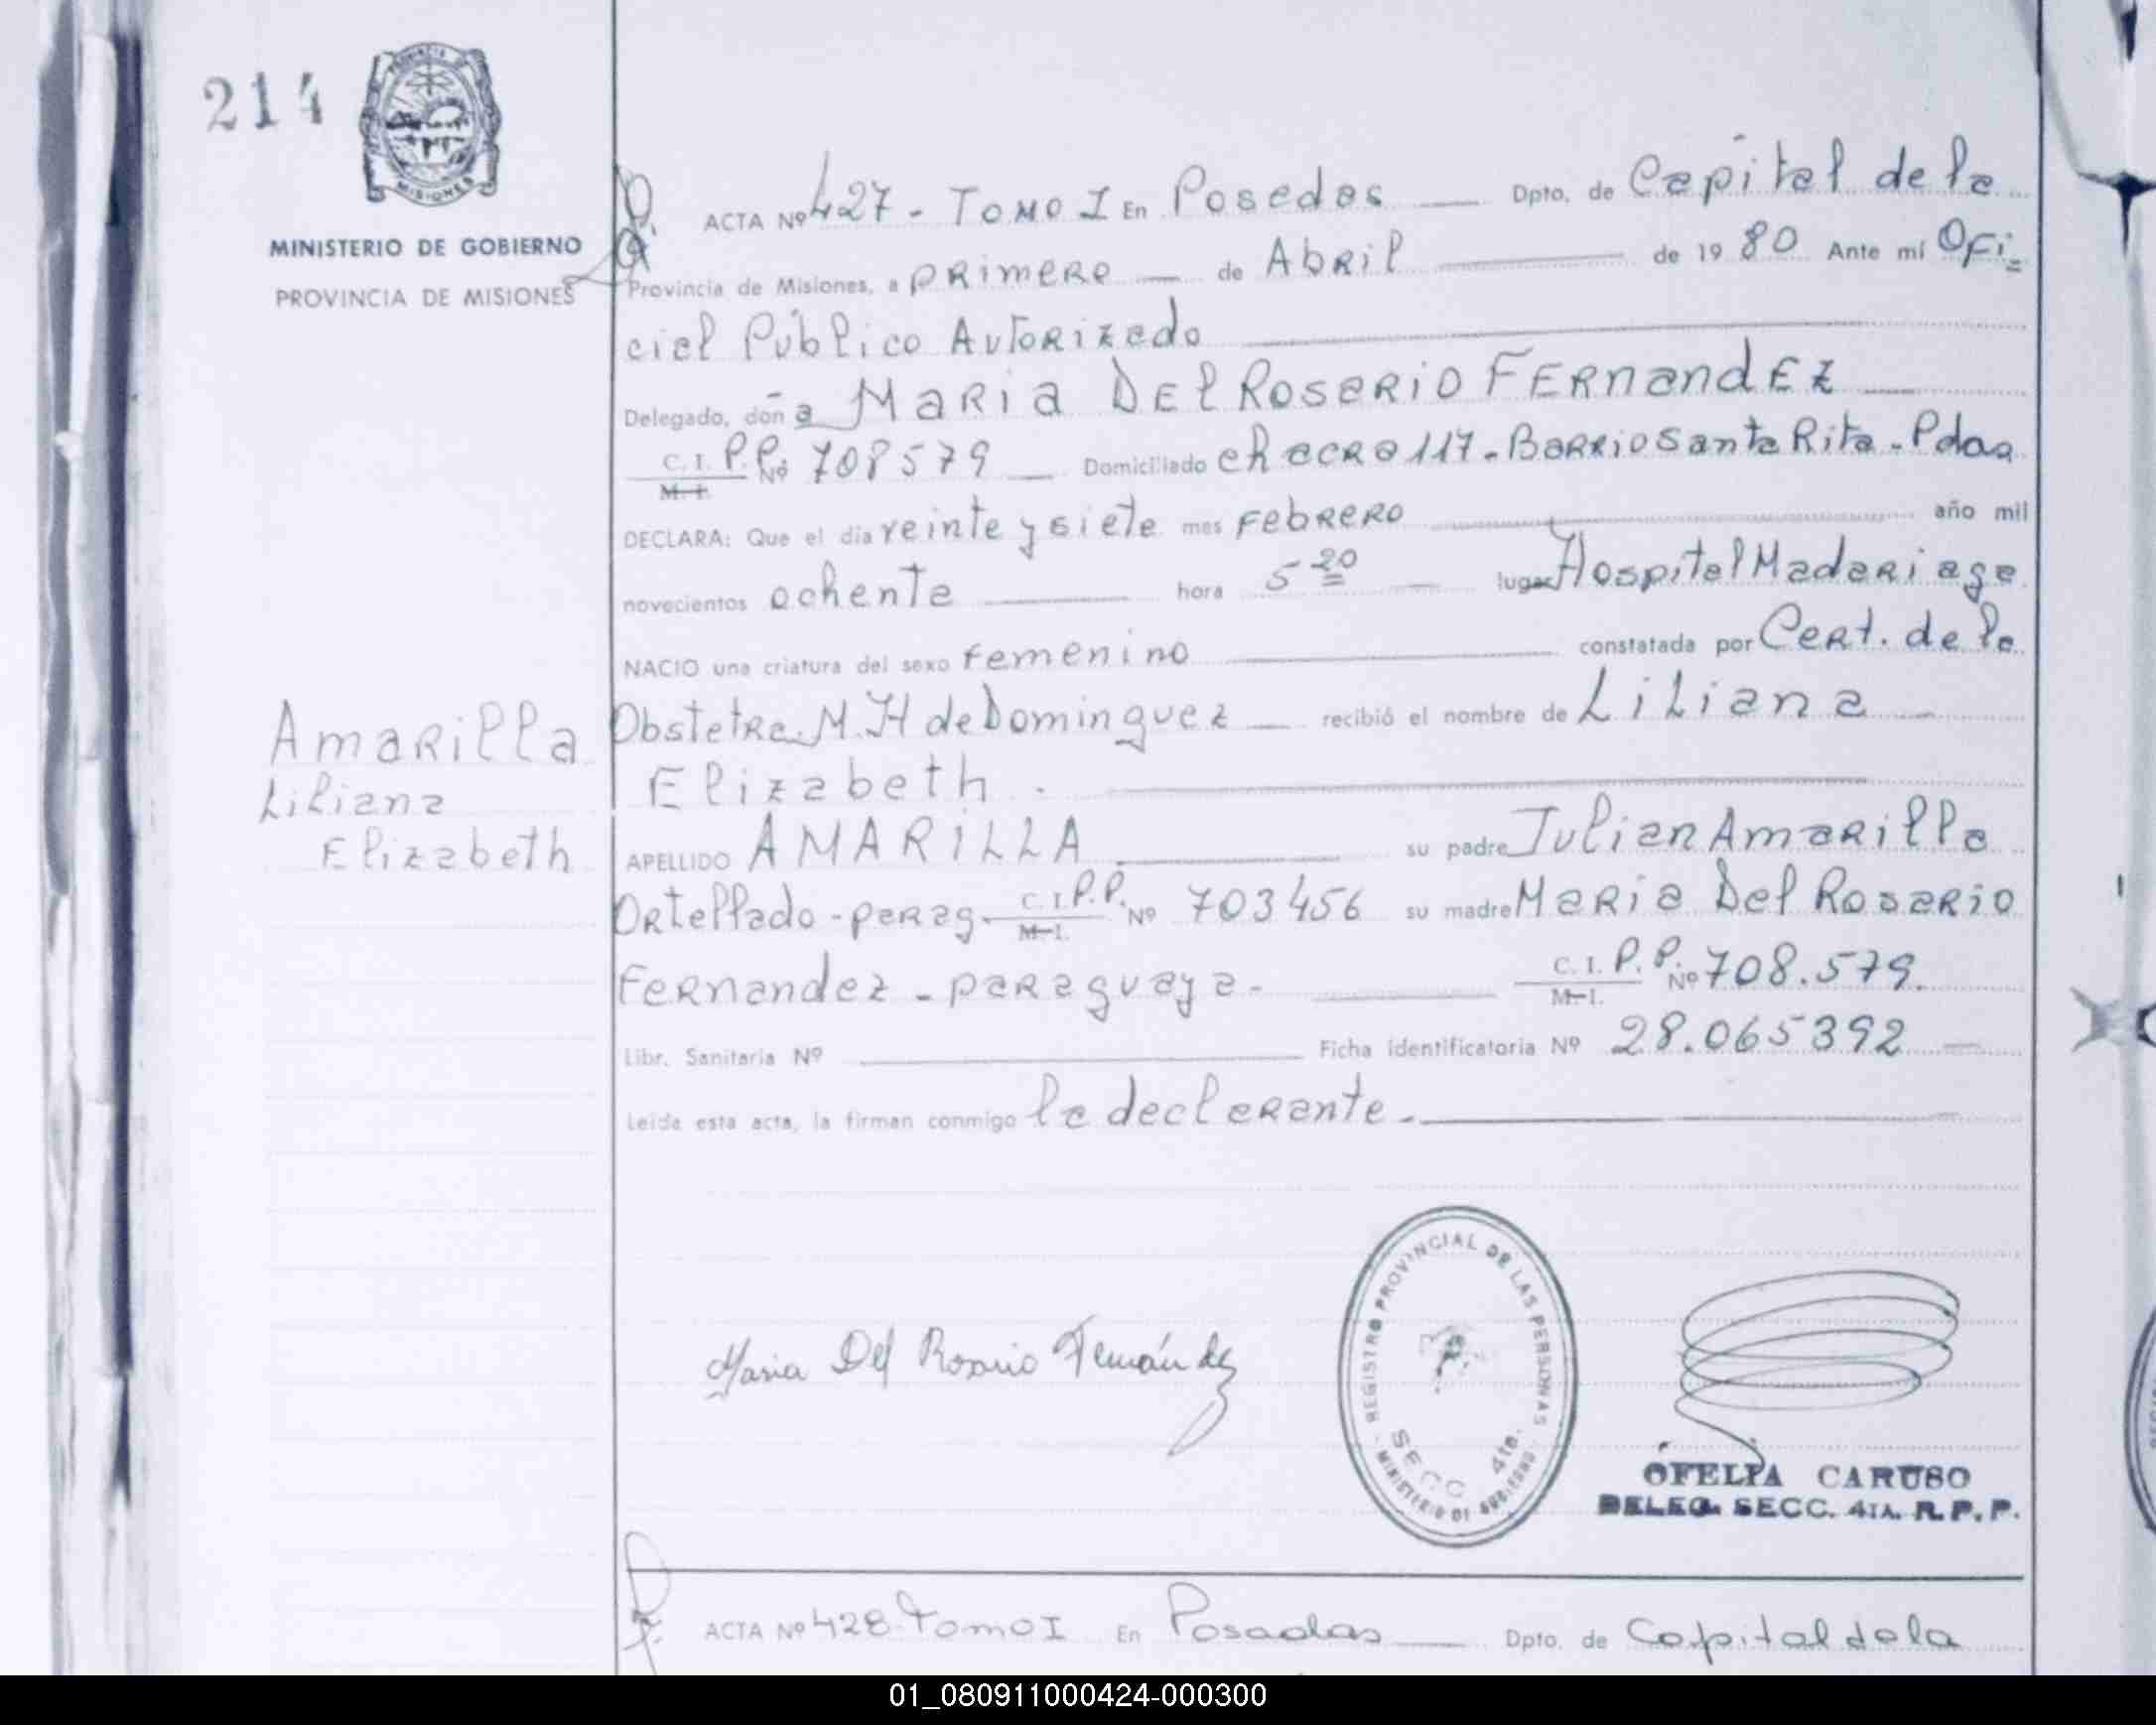 214
PROVINCIA
MISIONES
MINISTERIO DE GOBIERNO
PROVINCIA DE MISIONES
ACTA Nº 427 - TOMO I En Posadas — Dpto. de Capital de la
Provincia de Misiones, a primero — de Abril — de 1980 Ante mí Ofi=
cial Público Autorizado
Delegado, doña Maria Del Rosario Fernandez —
C. I. P.P. Nº 708579 — Domiciliado chacra 117 - Barrio Santa Rita - Pdas
M. I.
DECLARA: Que el día veinte y siete mes Febrero año mil
novecientos ochenta — hora 5 20 — lugar Hospital Madariaga
NACIO una criatura del sexo femenino — constatada por Cert. de la
Obstetra. M. H de Dominguez — recibió el nombre de Liliana —
Elizabeth .
APELLIDO AMARILLA — su padre Julian Amarilla
Ortellado - parag. C. I. P.P. Nº 703456 su madre Maria Del Rosario
M. I.
Fernandez - paraguaya - — C. I. P. P. Nº 708.579.
M. I.
Libr. Sanitaria Nº — Ficha identificatoria Nº 28.065392 —
Leída esta acta, la firman conmigo la declarante. —
Amarilla
Liliana
Elizabeth
Maria Del Rosario Fernández
REGISTRO PROVINCIAL DE LAS PERSONAS
SECC 4ta.
MINISTERIO DE GOBIERNO
OFELIA CARUSO
DELEG. SECC. 4TA. R. P. P.
ACTA Nº 428 - Tomo I En Posadas — Dpto. de Capital de la
01_080911000424-000300